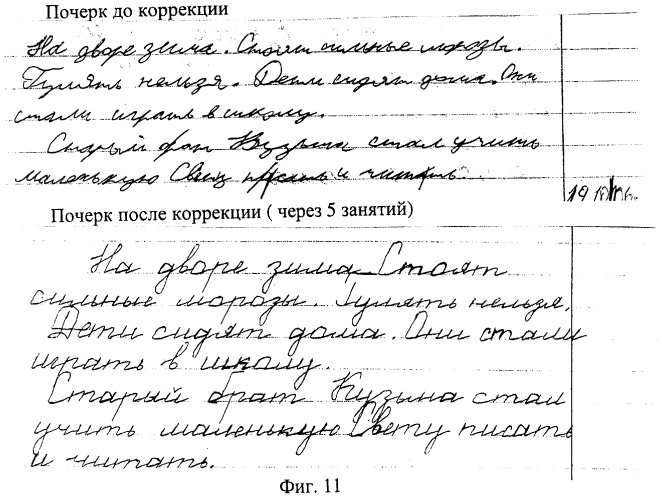 Почерк до коррекции
На дворе зима. Стоят сильные морозы.
Гулять нельзя. Дети сидят дома. Они
стали играть в школу.
Старый брат Кузьма стал учить
маленькую Свету писать и читать.
Почерк после коррекции ( через 5 занятий)
На дворе зима Стоят
сильные морозы. Гулять нельзя.
Дети сидят дома. Они стали
играть в школу.
Старый брат Кузьма стал
учить маленькую Свету писать
и читать.
Фиг. 11